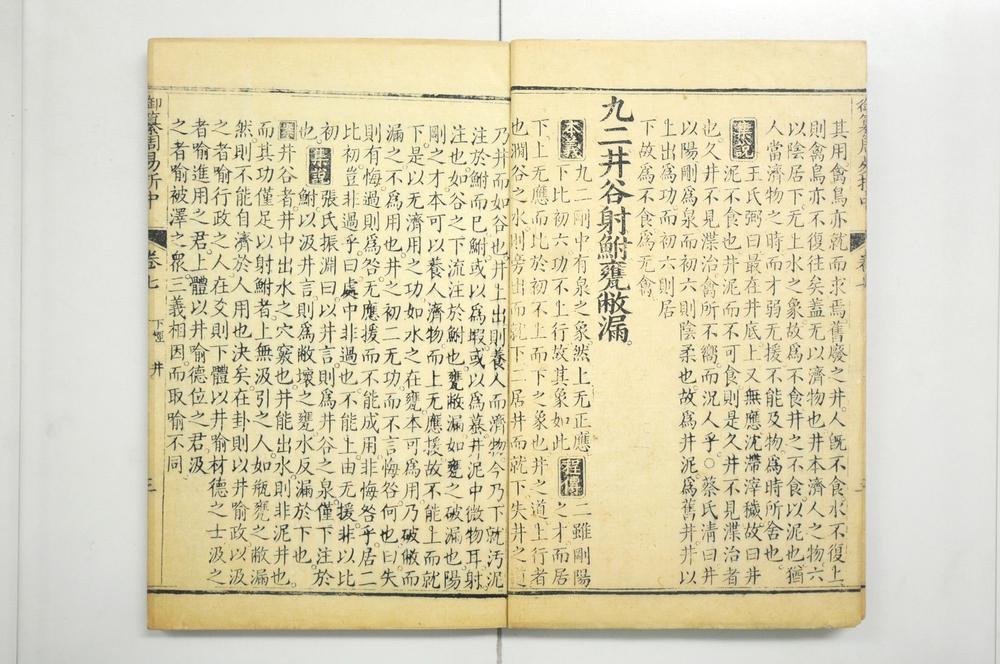 其用禽鳥亦就而求焉舊廢之井人既不食水不復上
則禽鳥亦不復往矣蓋无以濟物也井本濟人之物六
以陰居下无上水之象故爲不食井之不食以泥也猶
人當濟物之時而才弱无援不能及物爲時所舍也。
集說 王氏弼曰最在井底上又無應沈滯滓穢故曰井
泥不食也井泥而不可食則是久井不見渫治者
也久井不見渫治禽所不嚮而況人乎。○蔡氏清曰井
以陽剛爲泉而初六則陰柔也故爲井泥爲舊井井以
上出爲功而初六則居
下故爲不食爲无禽
九二井谷射鮒甕敝漏。
本義 九二剛中有泉之象然上无正應 程傳 二雖剛陽
下比初六功不上行故其象如此 之才而居
下上无應而比於初不上而下之象也井之道上行者
也澗谷之水則旁出而就下二居井而就下失井之
乃井而如谷也井上出則養人而濟物今乃下就汚泥
注於鮒而已鮒或以爲蝦或以爲蟇井泥中微物耳射
注也如谷之下流注於鮒也甕敝漏如甕之破漏也陽
剛之才本可以養人濟物而上无應援故不能上而就
下是以无濟用之功如水之在甕本可爲用乃破敝而
漏之不爲用也井之初二无功而不言悔咎何也曰失
則有悔過則爲咎无應援而不能成用非悔咎乎居二
比初豈非過乎曰處中非過也不能上由无援非以比
初也。 集說 張氏振淵曰以井言則爲井谷之泉僅下注於
鮒以汲井言則爲敝壞之甕水反漏於下也。
案 井谷者井中出水之穴竅也井能出水則非泥井也。
而其功僅足以射鮒者上無汲引之人如瓶甕之敝漏
然則不能自濟於人用也決矣在卦則以井喻政以汲
之者喻行政之人在爻則下體以井喻材德之士汲之
者喻進用之君上體以井喻德位之君汲
之者喻被澤之衆三義相因而取喻不同
御纂周易折中 卷七 下經 井 三